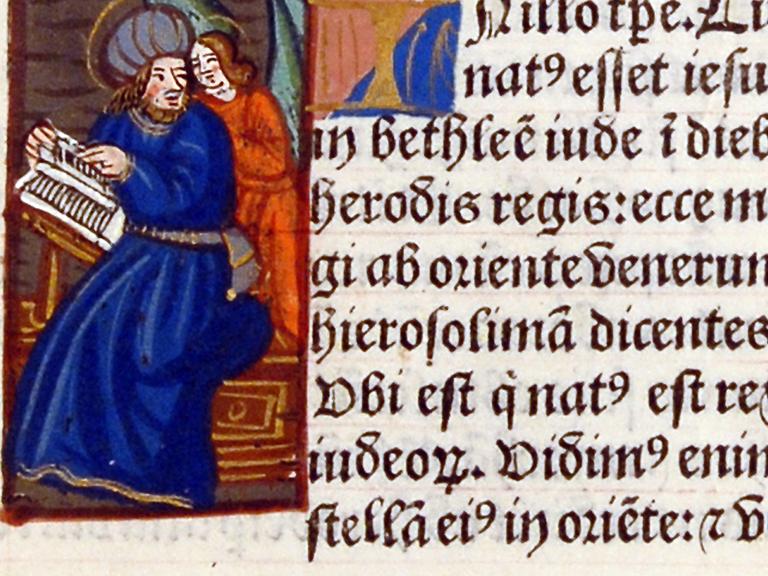 N illo tꝑe. Cū
natꝰ esſet ieſu
in bethleē iude ī dieb
herodis regis: ecce m
gi ab oriente venerun
hieroſolimā dicentes
Vbi eſt q̇ natꝰ eſt rex
iudeoꝝ. Vidimꝰ enim
ſtellā eiꝰ in oriēte: ⁊ v